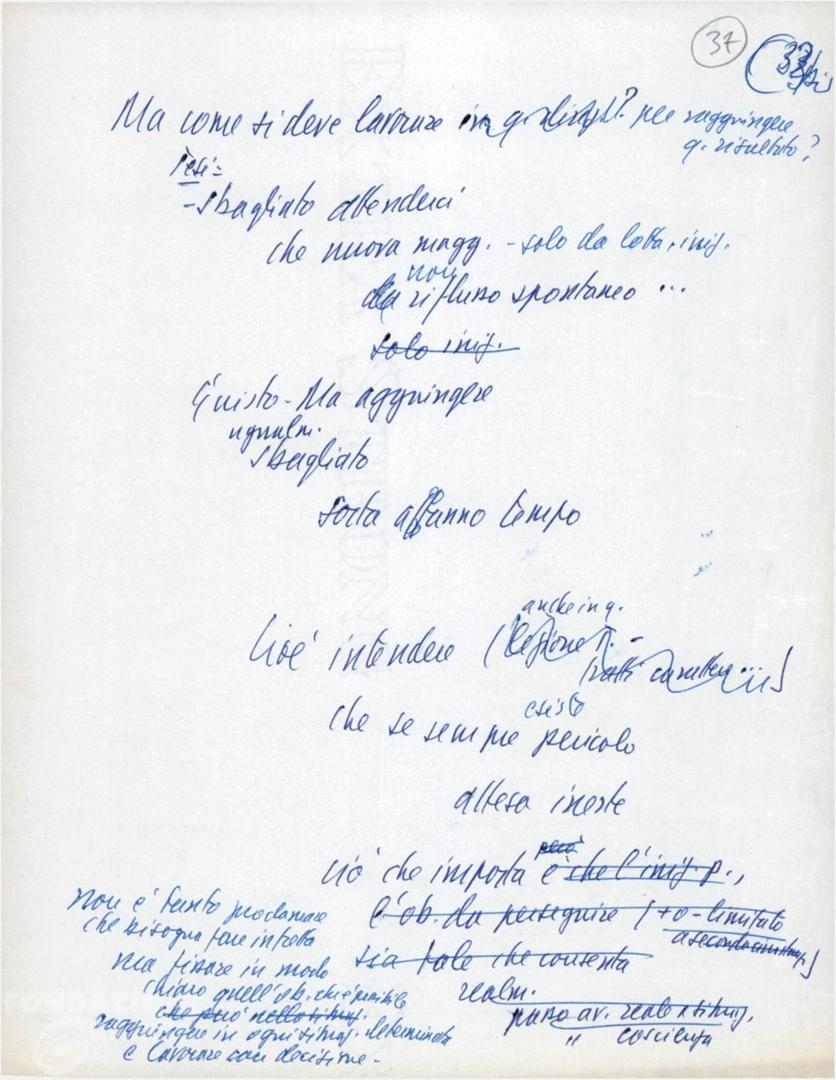 37
33 bis
Ma come si deve lavorare in q. per raggiungere
q. risultato?
Tesi:
- sbagliato attenderci
che nuova magg. - solo da lotta, iniz.
non
da riflusso spontaneo ...
solo iniz.
Giusto - Ma aggiungere
ugualm.
sbagliato
sorta affanno tempo
anche in q.
Cioè intendere (
tratti carattere ...)
esiste
che se sempre pericolo
attesa inerte
però
ciò che importa è che l'iniz. p.,
l'ob. da perseguire (+ o - limitato
a seconda)
sia tale che consenta
realm.
passo av. reale
" coscienza
Non è tanto proclamare
che bisogna fare in fretta
ma fissare in modo
chiaro quell'ob. che è possibile
che può nella situaz.
raggiungere in ogni situaz. determinata
e lavorare con decisione -